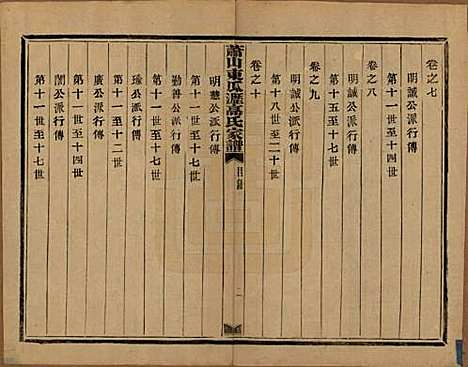 卷之七
明誠公派行傳
第十一世至十四世
卷之八
明誠公派行傳
第十五世至十七世
卷之九
明誠公派行傳
第十八世至二十世
卷之十
蕭山東瓜瀝高氏家譜
目錄
明華公派行傳
第十一世至十七世
勤善公派行傳
第十一世至十二世
瑧公派行傳
第十一世至十七世
廣公派行傳
第十一世至十四世
闇公派行傳
第十一世至十七世